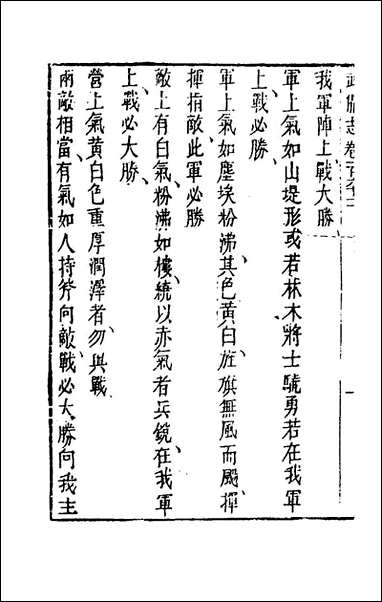 武備志卷
我軍陣上戰大勝
軍上氣如山堤形或若林木將士驍勇若在我軍
上戰必勝
軍上氣如塵埃粉沸其色黃白旌旗無風而颺揮
揮指敵此軍必勝
敵上有白氣粉沸如樓繞以赤氣者兵銳在我軍
上戰必大勝
營上氣黃白色重厚潤澤者勿與戰
兩敵相當有氣如人持斧向敵戰必大勝向我主